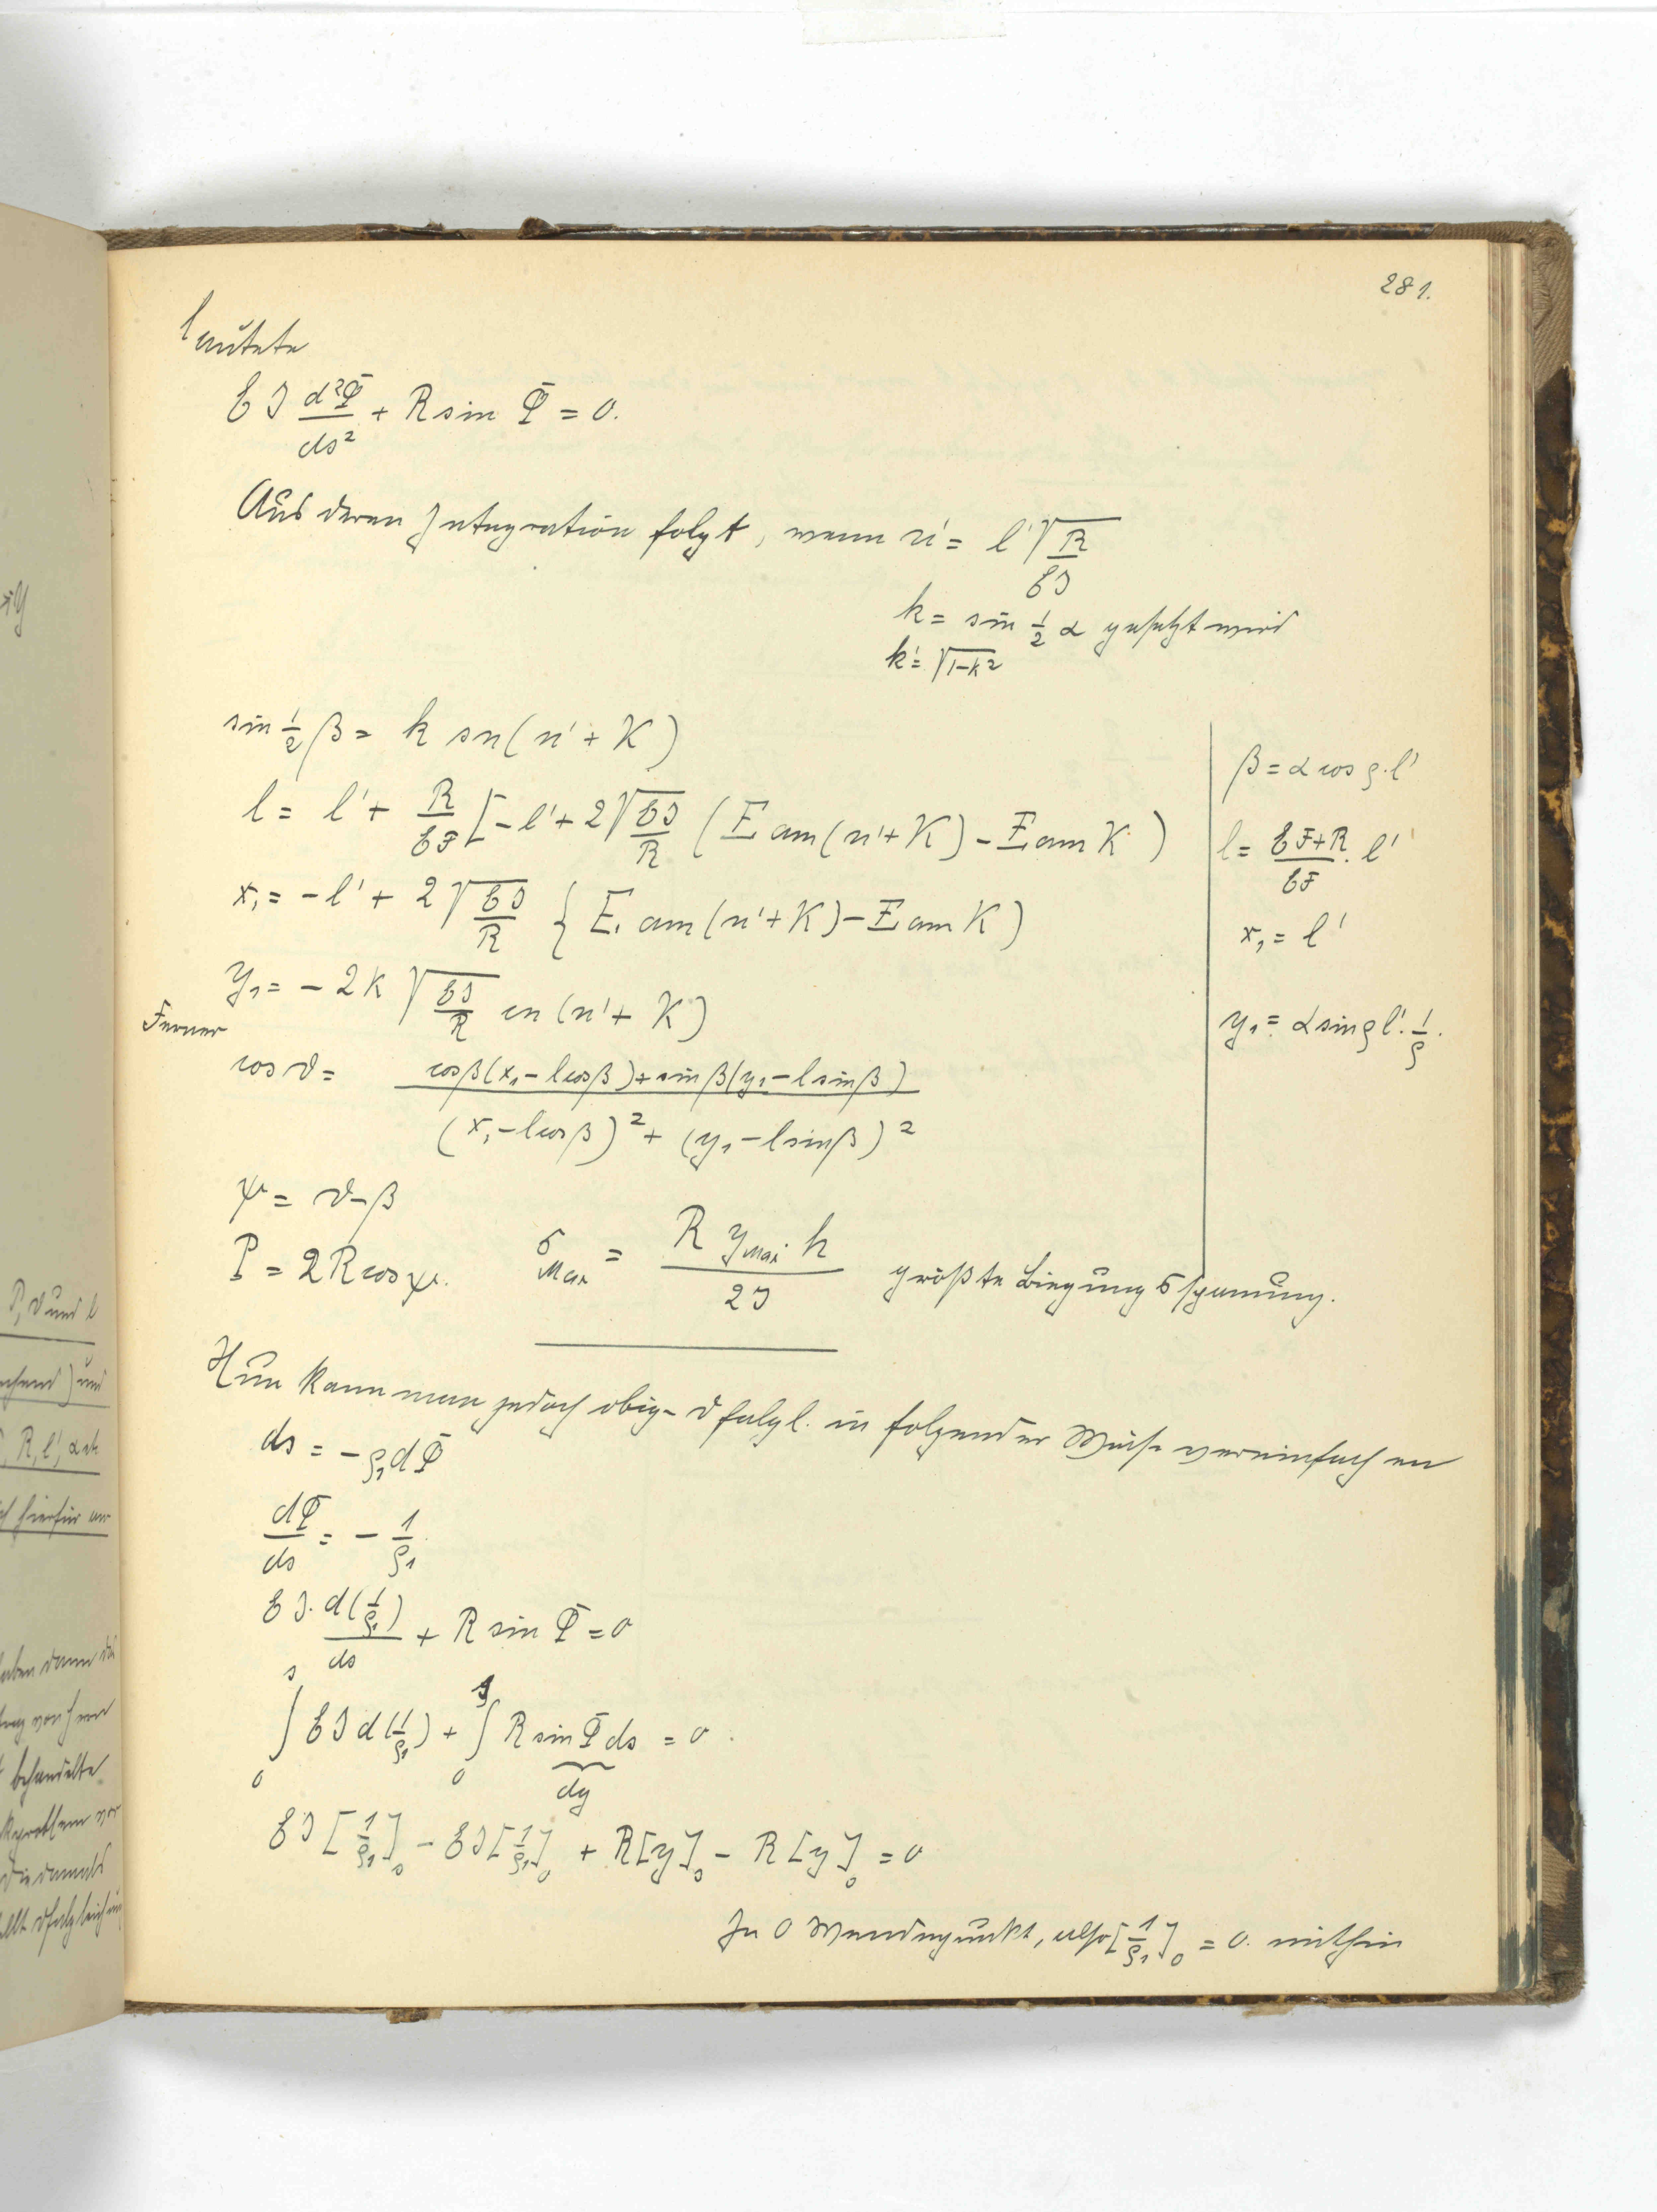 281.
lautete
EJ d²Φ/ds² + R sin Φ = 0.
Aus deren Integration folgt, wenn u' = l' √(R/EJ)
k = sin ½ α gesetzt wird
k' = √(1-k²)
sin ½ β = k sn(u' + K)
l = l' + R/EF [-l' + 2√(EJ/R) (E am(u'+K) - E am K)
x₁ = -l' + 2√(EJ/R) {E am(u'+K) - E am K)
y₁ = -2k √(EJ/R) cn(u' + K)
β = α cos ρ.l'
l = (EF+R)/EF . l'
x₁ = l'
y₁ = α sin ρl' . 1/ρ.
Ferner
cos ϑ = (cos β(x₁ - l cos β) + sin β(y₁ - l sin β)) / ((x₁ - l cos β)² + (y₁ - l sin β)²)
ψ = ϑ - β
P = 2R cos ψ. σMax = R yMax h / 2J größte Biegungsspannung.
Nun kann man jedoch obige Dfalglg. in folgender Weise vereinfachen
ds = -ρ₁dΦ
dΦ/ds = - 1/ρ₁
EJ. d(1/ρ₁)/ds + R sin Φ = 0
∫₀ˢ EJ d(1/ρ₁) + ∫₀ˢ R sin Φ ds = 0.
dy
EJ [1/ρ₁]s - EJ [1/ρ₁]₀ + R[y]s - R[y]₀ = 0
In 0 Wendepunkt, also [1/ρ₁]₀ = 0. mithin